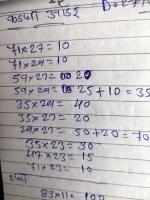 71×27=10
71×29=10
59×27=20
59×29=25+10=35
35×29=40
35×27=20
29×27=50+20=70
35×23=30
47×23=15
71×23=10
83×11=100